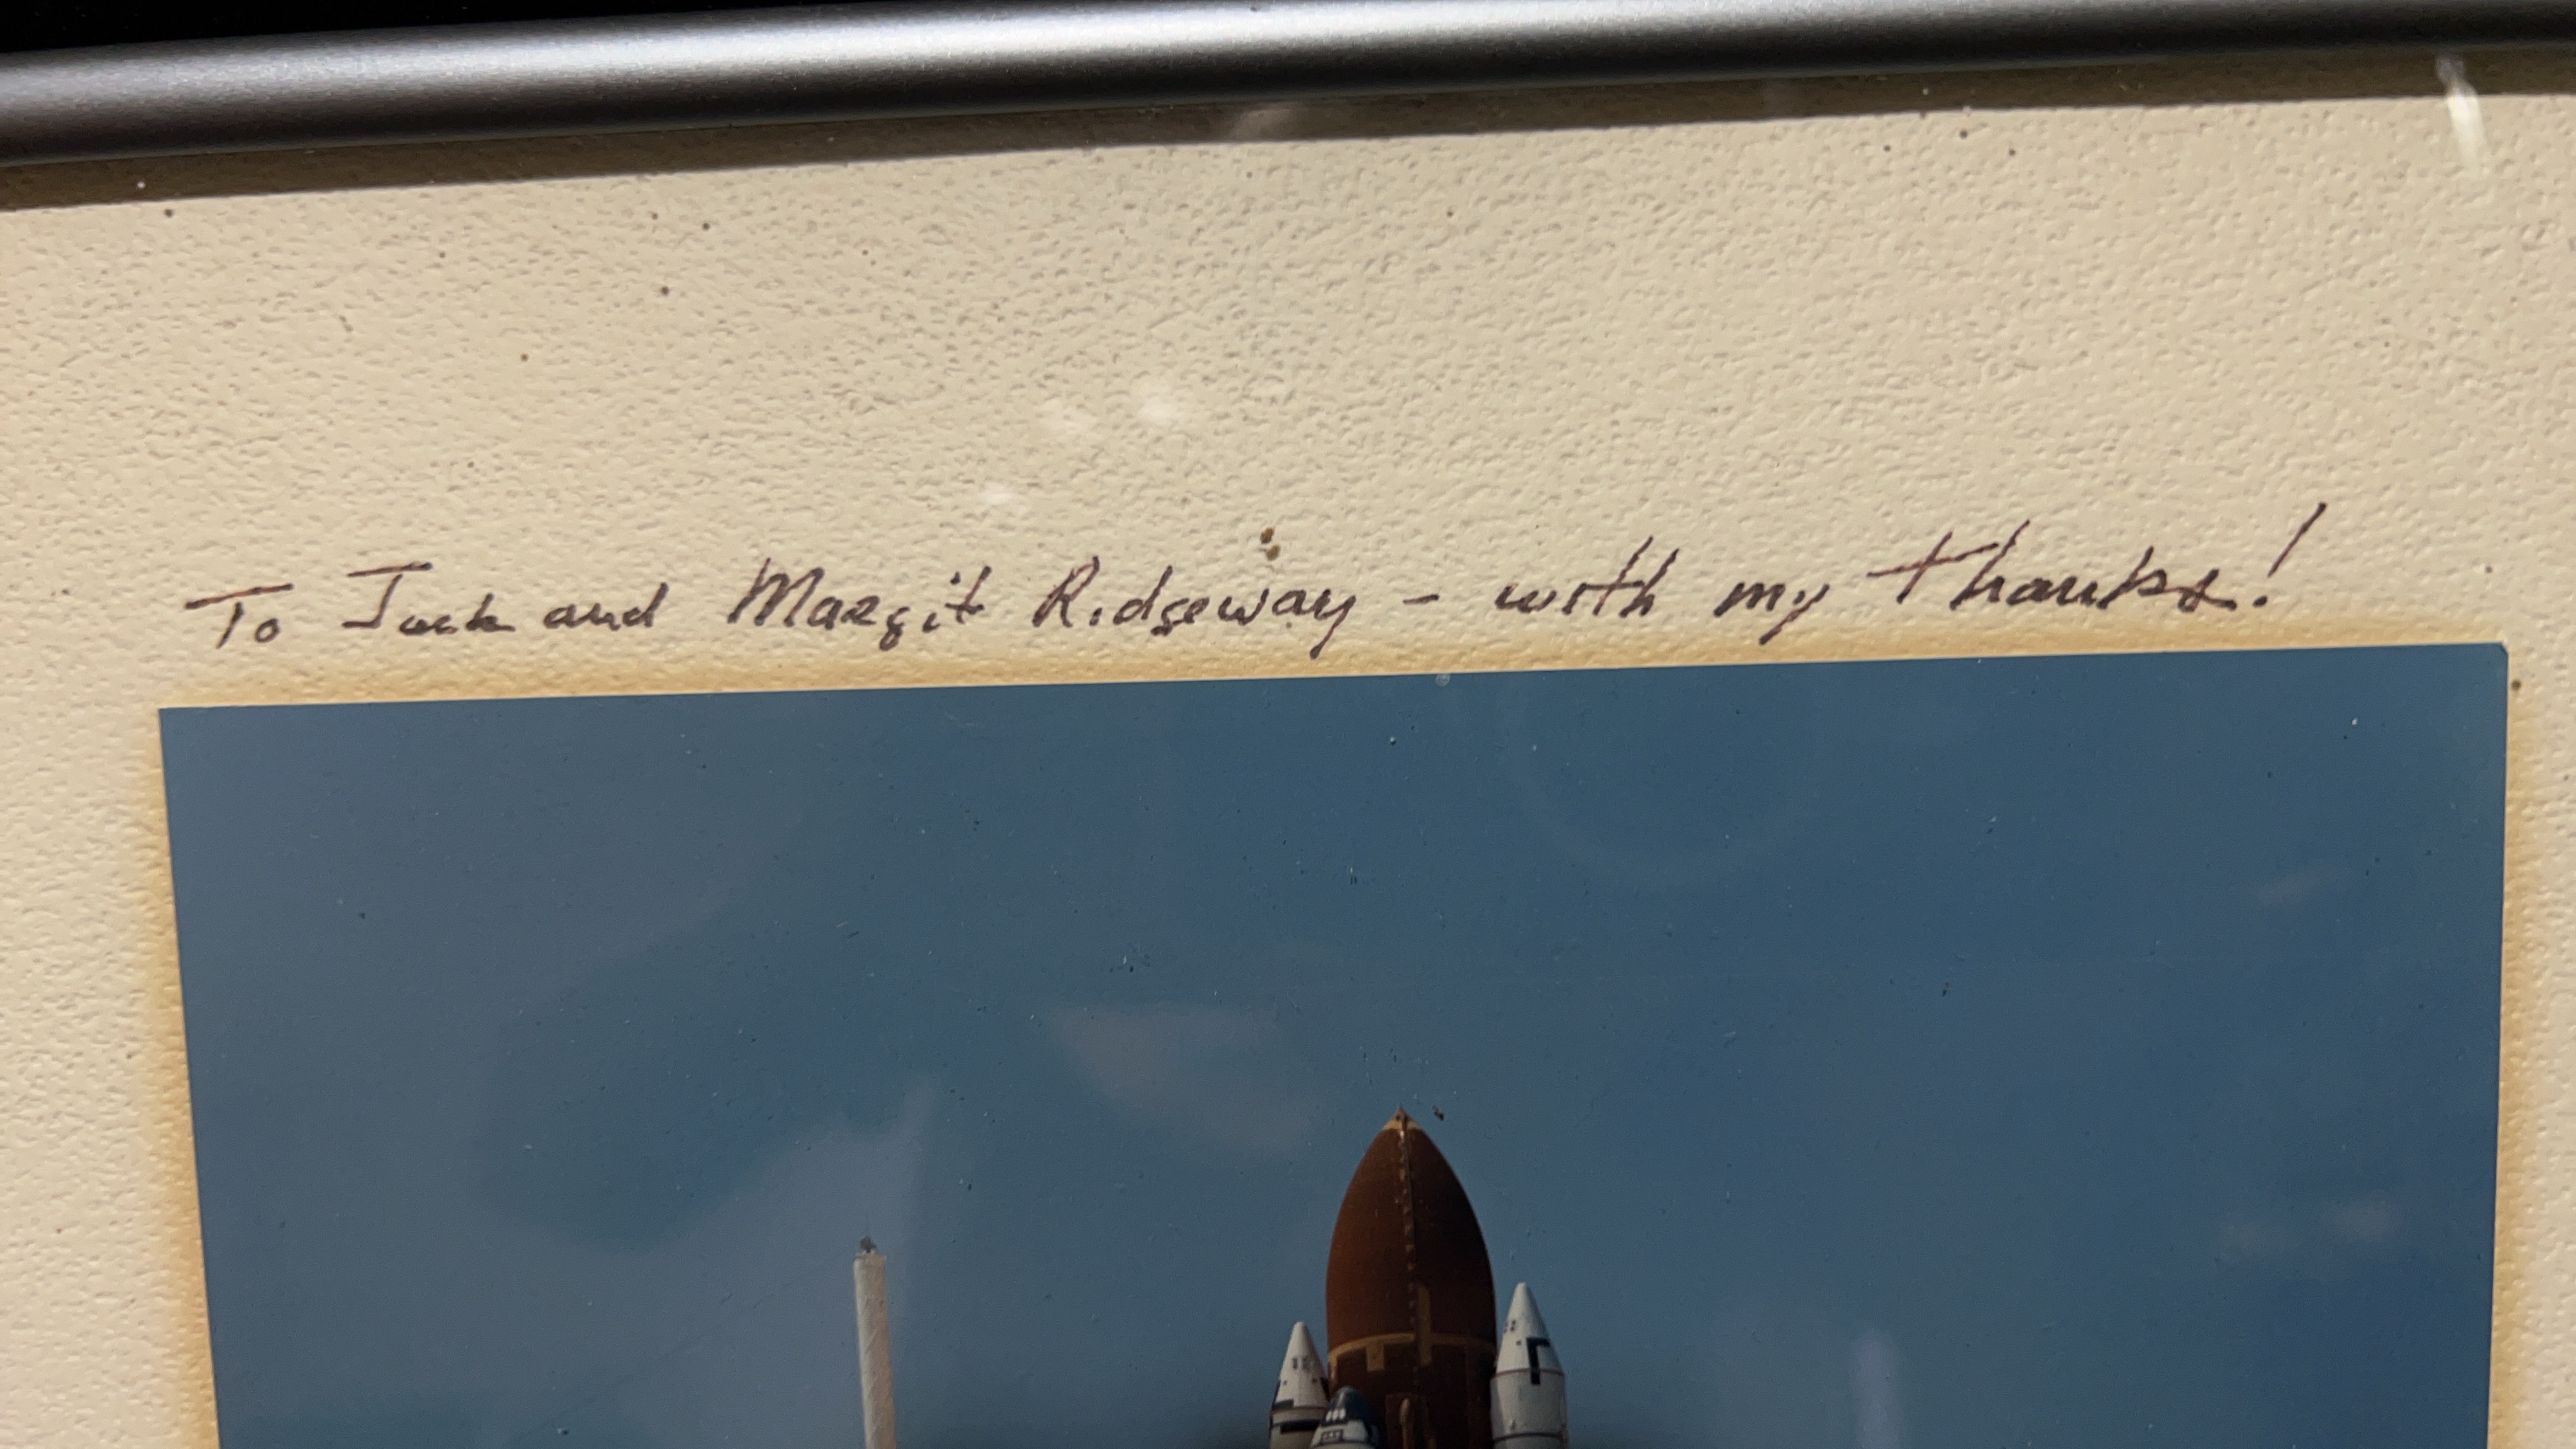 To Jack and Margit Ridgeway - with my thanks!